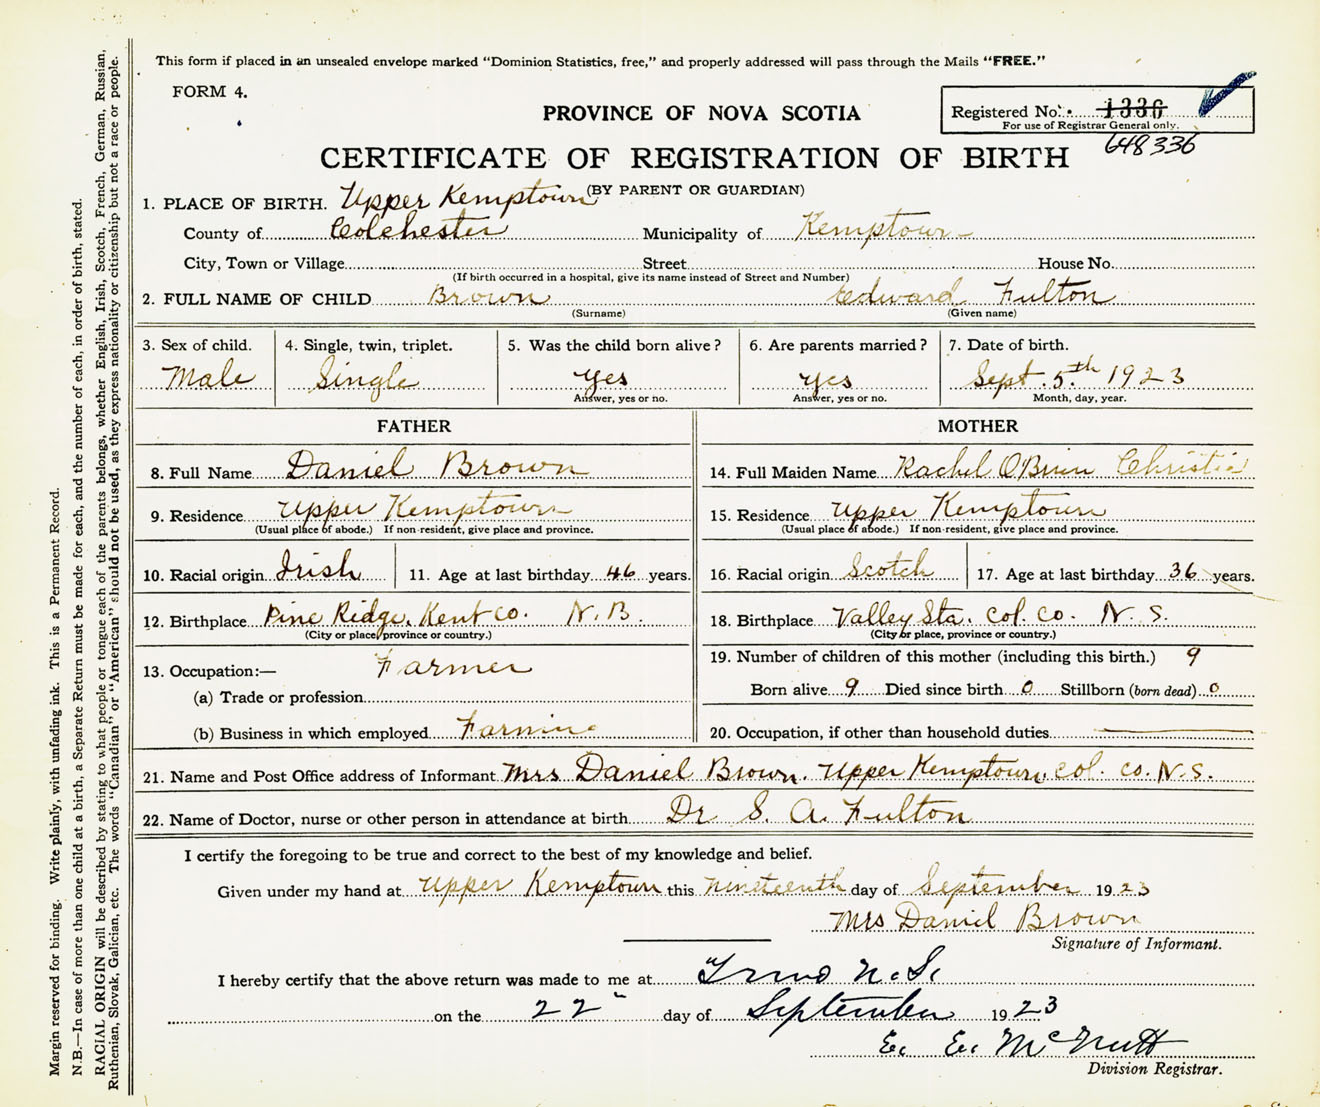 This form if placed in an unsealed envelope marked "Dominion Statistics, free," and properly addressed will pass through the Mails "FREE."
FORM 4.
PROVINCE OF NOVA SCOTIA
Registered No. 1336
For use of Registrar General only.
648336
CERTIFICATE OF REGISTRATION OF BIRTH
(BY PARENT OR GUARDIAN)
1. PLACE OF BIRTH. Upper Kemptown
County of Colchester Municipality of Kemptown
City, Town or Village Street House No.
(If birth occurred in a hospital, give its name instead of Street and Number)
2. FULL NAME OF CHILD Brown Edward Fulton
(Surname) (Given name)
3. Sex of child. 4. Single, twin, triplet. 5. Was the child born alive? 6. Are parents married? 7. Date of birth.
Male Single Yes Yes Sept. 5th 1923
Answer, yes or no. Answer, yes or no. Month, day, year.
FATHER MOTHER
8. Full Name Daniel Brown 14. Full Maiden Name Rachel O'Brien Christie
9. Residence Upper Kemptown 15. Residence Upper Kemptown
(Usual place of abode.) If non-resident, give place and province. (Usual place of abode.) If non-resident, give place and province.
10. Racial origin Irish 11. Age at last birthday 46 years. 16. Racial origin Scotch 17. Age at last birthday 36 years.
12. Birthplace Pine Ridge, Kent Co. N.B. 18. Birthplace Valley Sta. Col. Co. N.S.
(City or place, province or country.) (City or place, province or country.)
13. Occupation:— Farmer 19. Number of children of this mother (including this birth.) 9
(a) Trade or profession Born alive 9 Died since birth 0 Stillborn (born dead) 0
(b) Business in which employed Farming 20. Occupation, if other than household duties
21. Name and Post Office address of Informant Mrs Daniel Brown. Upper Kemptown, Col. Co. N.S.
22. Name of Doctor, nurse or other person in attendance at birth Dr S. A. Fulton
I certify the foregoing to be true and correct to the best of my knowledge and belief.
Given under my hand at Upper Kemptown this nineteenth day of September 1923
Mrs Daniel Brown
Signature of Informant.
I hereby certify that the above return was made to me at Truro N.S.
on the 22" day of September 1923
E. E. McNutt
Division Registrar.
Margin reserved for binding. Write plainly, with unfading ink. This is a Permanent Record.
N.B.—In case of more than one child at a birth, a Separate Return must be made for each, and the number of each, in order of birth, stated.
RACIAL ORIGIN will be described by stating to what people or tongue each of the parents belongs, whether English, Irish, Scotch, French, German, Russian,
Ruthenian, Slovak, Galician, etc. The words "Canadian" or "American" should not be used, as they express nationality or citizenship but not a race or people.